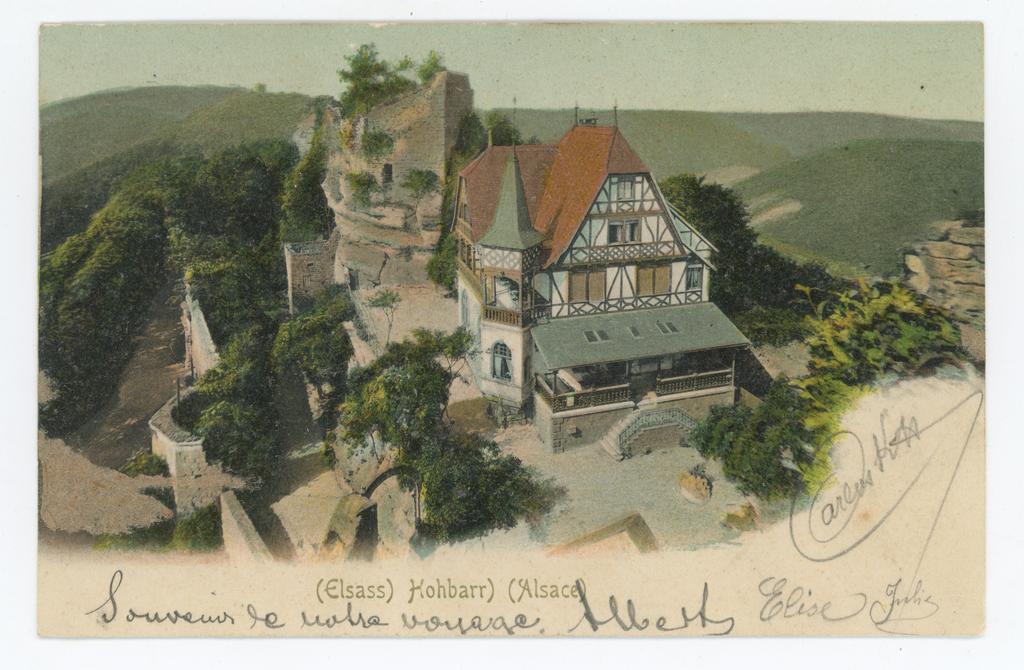 (Elsass) Hohbarr) (Alsace)
Souvenir de notre voyage. Albert Elise Julie
Carlos